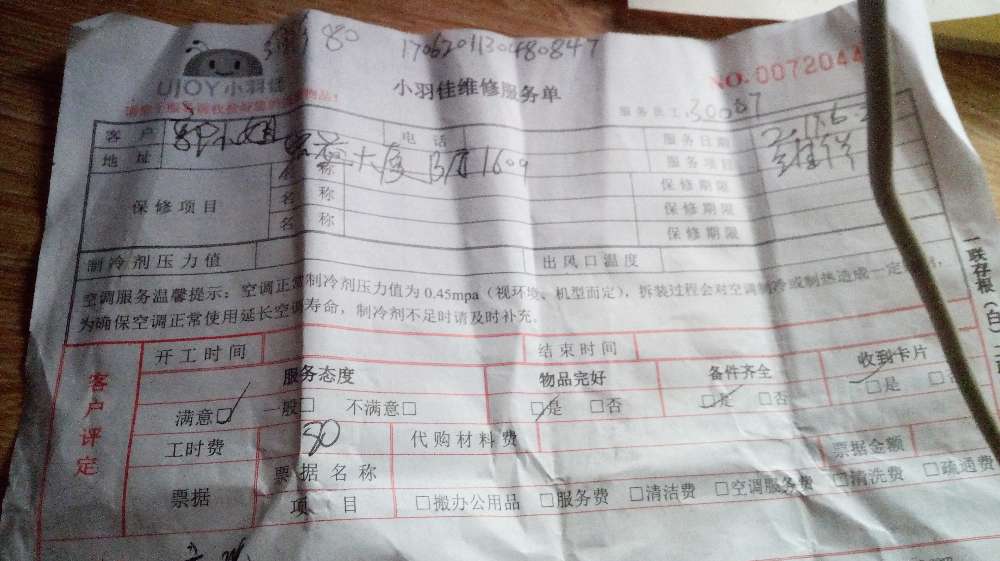 80 1706201130480847
UJOY小羽佳 小羽佳维修服务单 NO.0072044
服务员工:30087
客户 小姐 电话 服务日期
地址 大厦B座1609 服务项目
保修项目 名称 保修期限
名称 保修期限
名称 保修期限
制冷剂压力值 出风口温度
空调服务温馨提示:空调正常制冷剂压力值为0.45mpa(视环境、机型而定),拆装过程会对空调制冷或制热造成一定
为确保空调正常使用延长空调寿命,制冷剂不足时请及时补充。
一联存根(白
客户评定
开工时间 结束时间
服务态度 物品完好 备件齐全 收到卡片
满意□ 般□ 不满意□ □是 □否 □是 □否 □是 □否
工时费 80 代购材料费
票据 票据名称 票据金额
项目 □搬办公用品 □服务费 □清洁费 □空调服务费 □清洗费 □疏通费